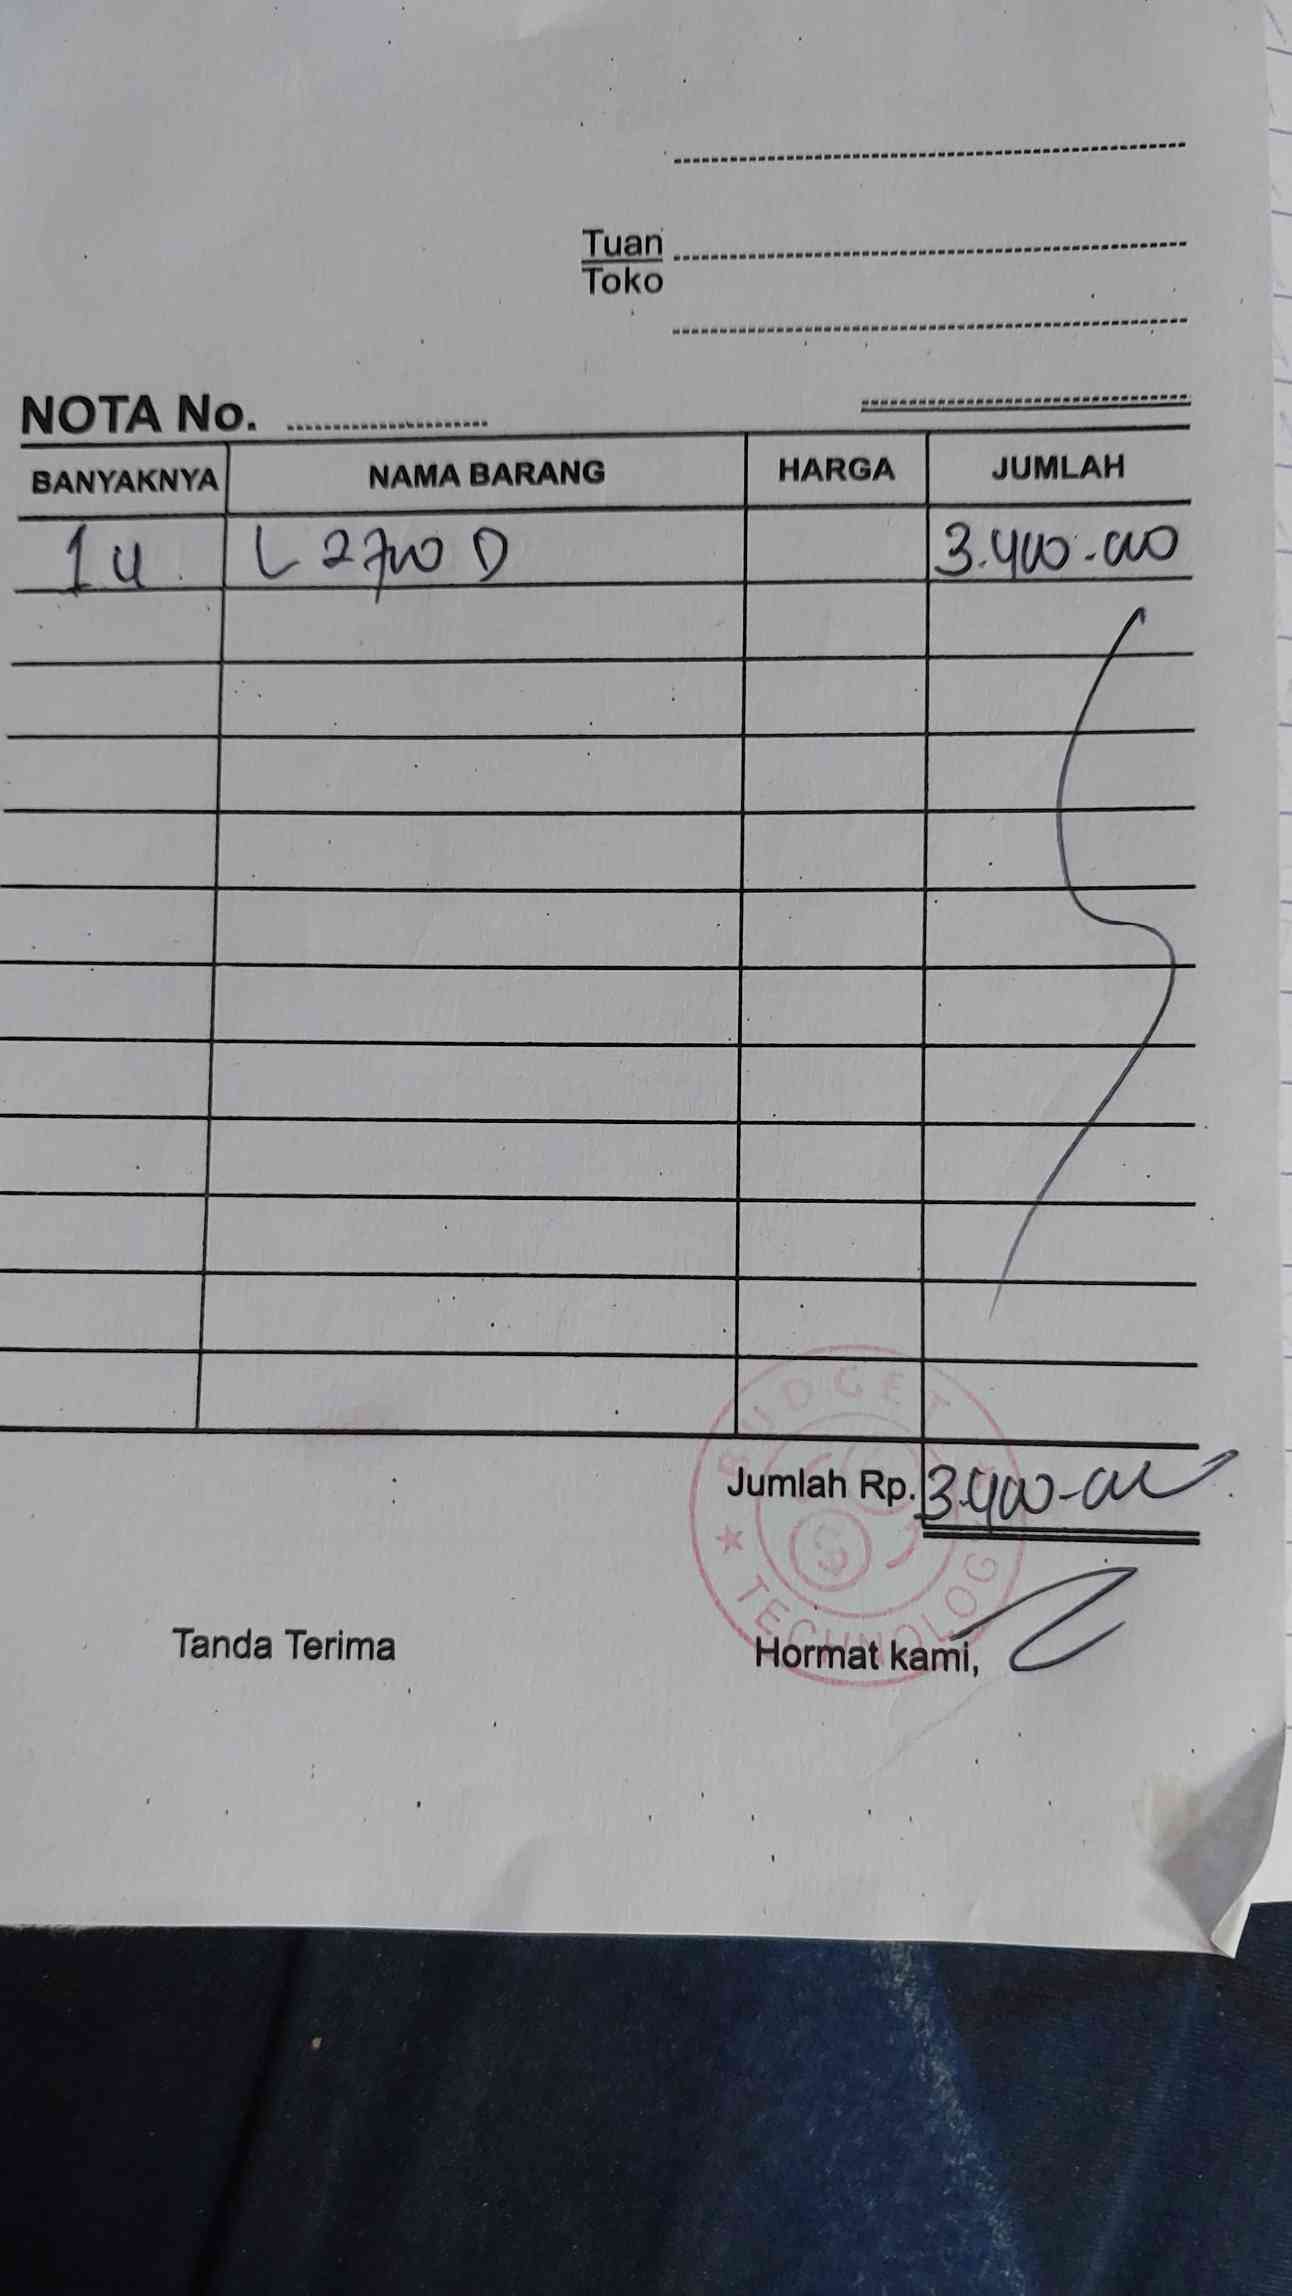 Tuan
Toko
NOTA No.
BANYAKNYA NAMA BARANG HARGA JUMLAH
1 u L 2700 D 3.400.000
Jumlah Rp. 3.400.000
BUDGET
TECHNOLOG
Tanda Terima Hormat kami,